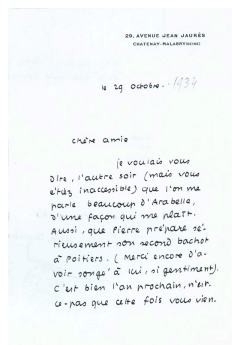 29, AVENUE JEAN JAURÈS
CHATENAY-MALABRY (SEINE)
le 29 octobre. 1934
Chère amie
je voulais vous
dire, l'autre soir (mais vous
étiez inaccessible) que l'on me
parle beaucoup d'Arabelle,
d'une façon qui me plaît.
Aussi, que Pierre prépare sé-
rieusement son second bachot
à Poitiers. (Merci encore d'a-
voir songé à lui, si gentiment).
C'est bien l'an prochain, n'est-
ce-pas que cette fois vous vien-